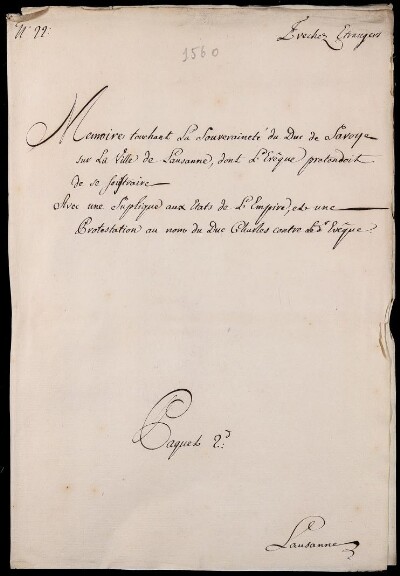 N.° 22:
Evechez Etrangers
1560
Memoires touchant La Souveraineté du Duc de Savoye
sur La Ville de Lausanne, dont L'Evêque pretendoit
de se soustraire
Avec une Supplique aux Etats de L'Empire, et une
Protestation au nom du Duc Charles contre led.t Evêque.
Paquet 2.d
Lausanne